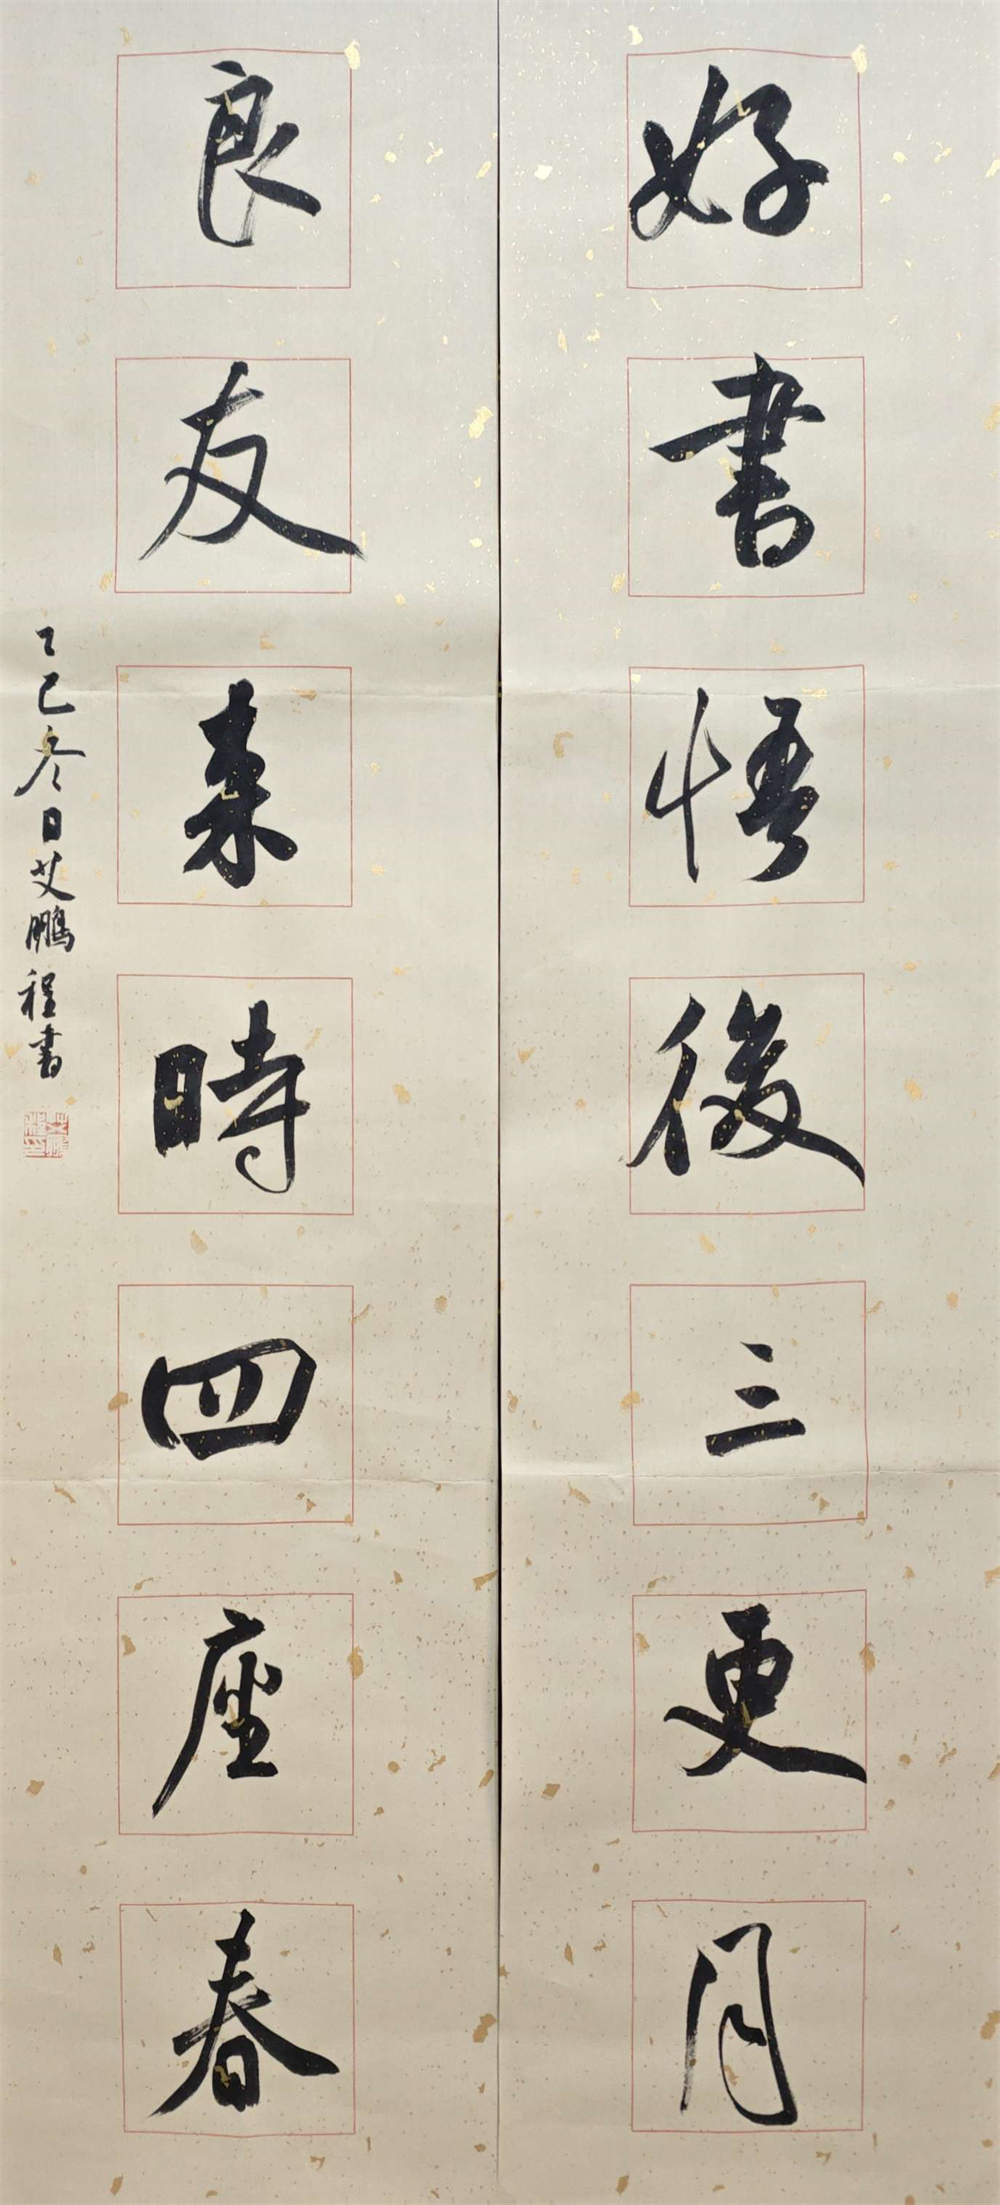 好書悟後三更月
良友来時四座春
乙巳冬日艾鵬程書